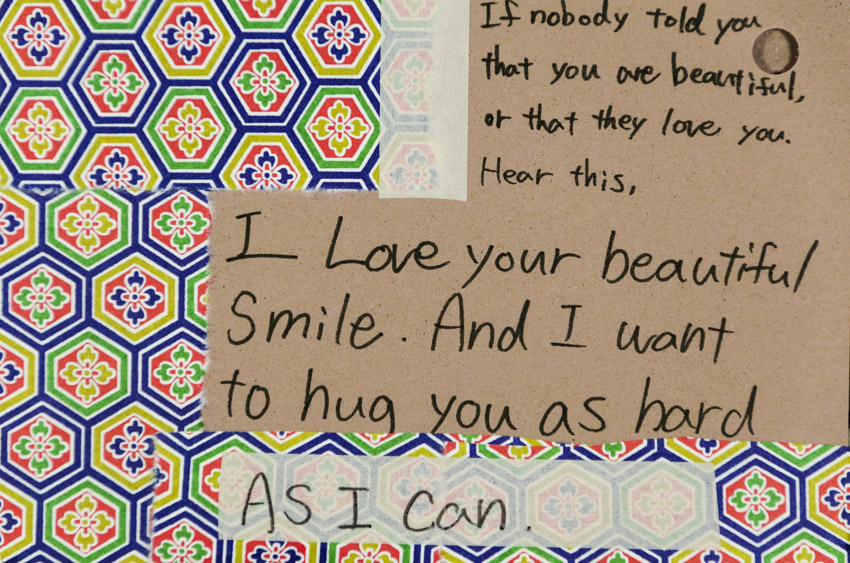 If nobody told you
that you are beautiful,
or that they love you.
Hear this,
I Love your beautiful
Smile. And I want
to hug you as hard
AS I Can.